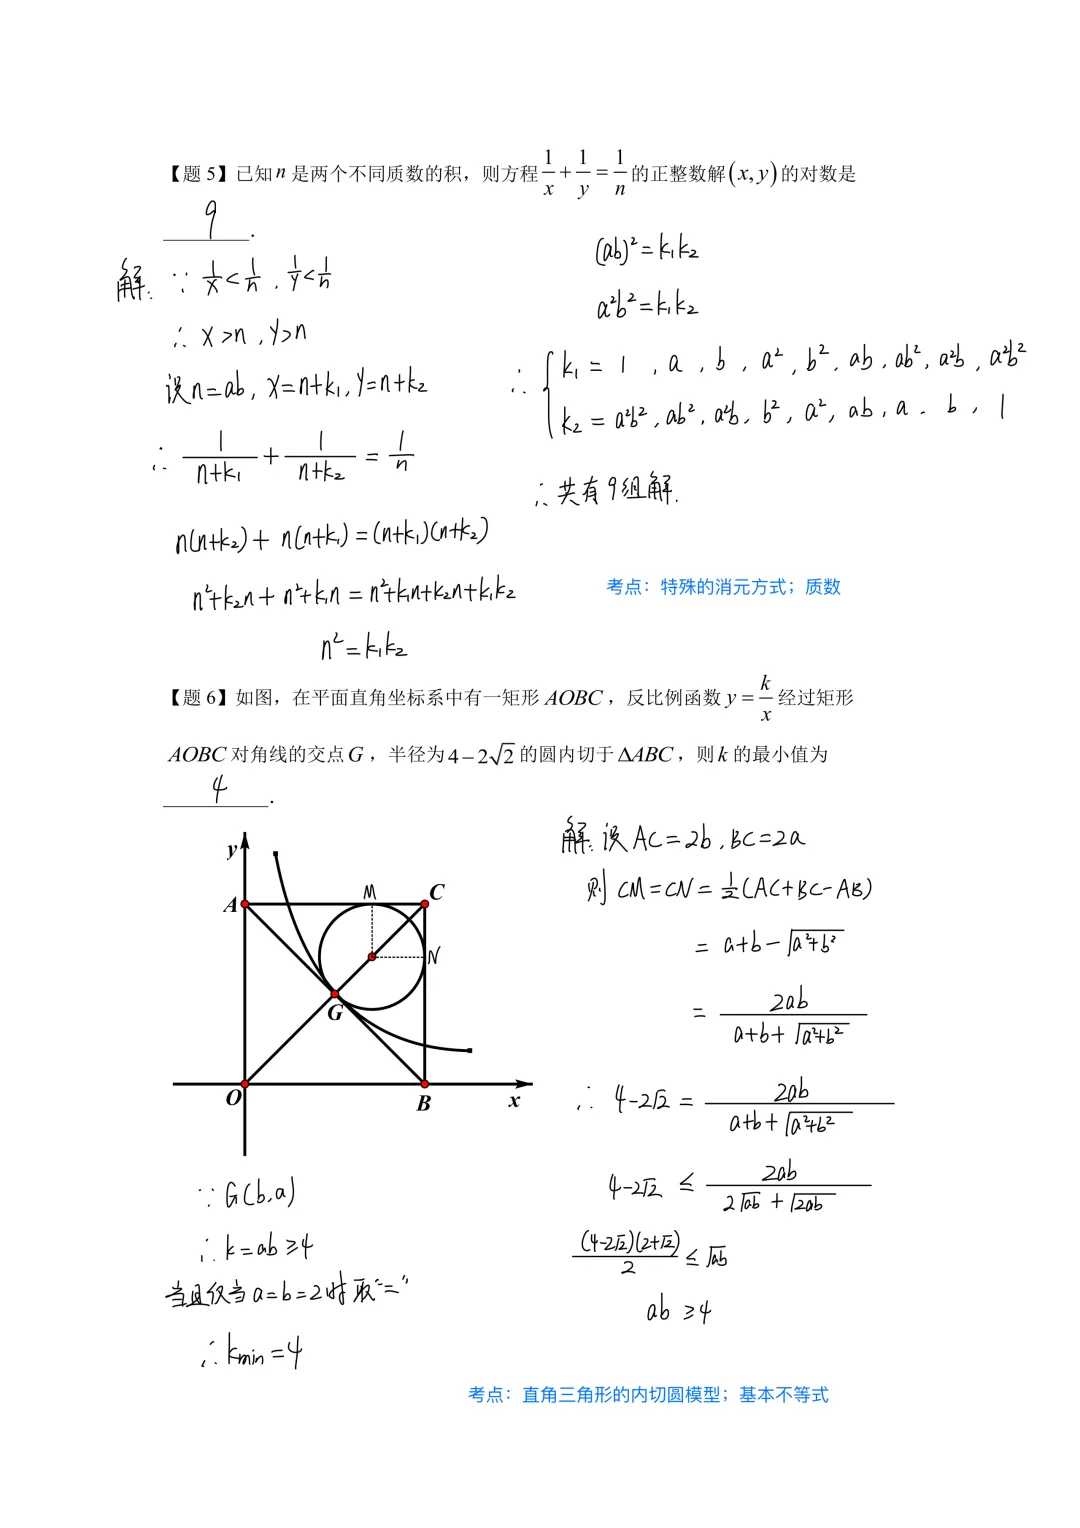 【题 5】已知 n 是两个不同质数的积，则方程 1/x + 1/y = 1/n 的正整数解 (x, y) 的对数是
9.
解: ∵ 1/x < 1/n , 1/y < 1/n
∴ x>n , y>n
设n=ab, x=n+k₁, y=n+k₂
∴ 1/(n+k₁) + 1/(n+k₂) = 1/n
n(n+k₂)+ n(n+k₁) = (n+k₁)(n+k₂)
n²+k₂n + n²+k₁n = n²+k₁n+k₂n+k₁k₂
n² = k₁k₂
(ab)² = k₁k₂
a²b² = k₁k₂
∴ { k₁ = 1 , a , b , a² , b² , ab , ab² , a²b , a²b²
k₂ = a²b² , ab² , a²b , b² , a² , ab , a 、 b , 1
∴ 共有9组解.
考点：特殊的消元方式；质数
【题 6】如图，在平面直角坐标系中有一矩形 AOBC ，反比例函数 y = k/x 经过矩形
AOBC 对角线的交点 G ，半径为 4−2√2 的圆内切于 ΔABC ，则 k 的最小值为
4.
y
A
M
C
N
G
O
B
x
∵ G(b,a)
∴ k=ab ≥4
当且仅当 a=b=2时取"="
∴ kmin =4
解: 设 AC=2b , BC=2a
则 CM=CN= ½(AC+BC-AB)
= a+b-√(a²+b²)
= 2ab/(a+b+√(a²+b²))
∴ 4-2√2 = 2ab/(a+b+√(a²+b²))
4-2√2 ≤ 2ab/(2√ab + √2ab)
(4-2√2)(2+√2)/2 ≤ √ab
ab ≥4
考点：直角三角形的内切圆模型；基本不等式